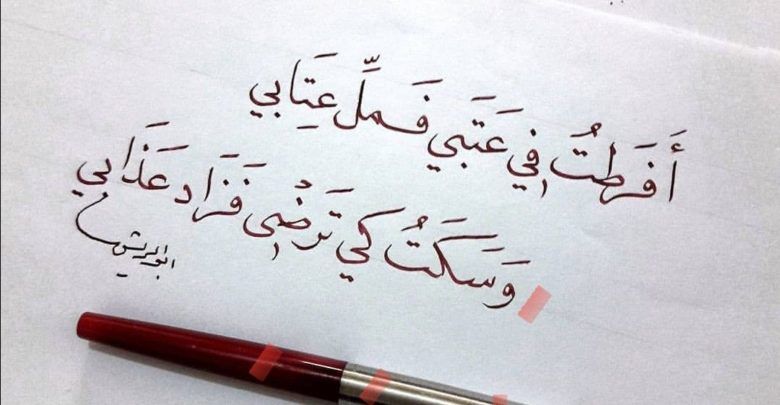 أَفرَطتُ في عَتَبي فَملِّ عِتَابي
وَسَكَتُ كي تَرضْى فَزَاد عَذَابي
ابو الريش